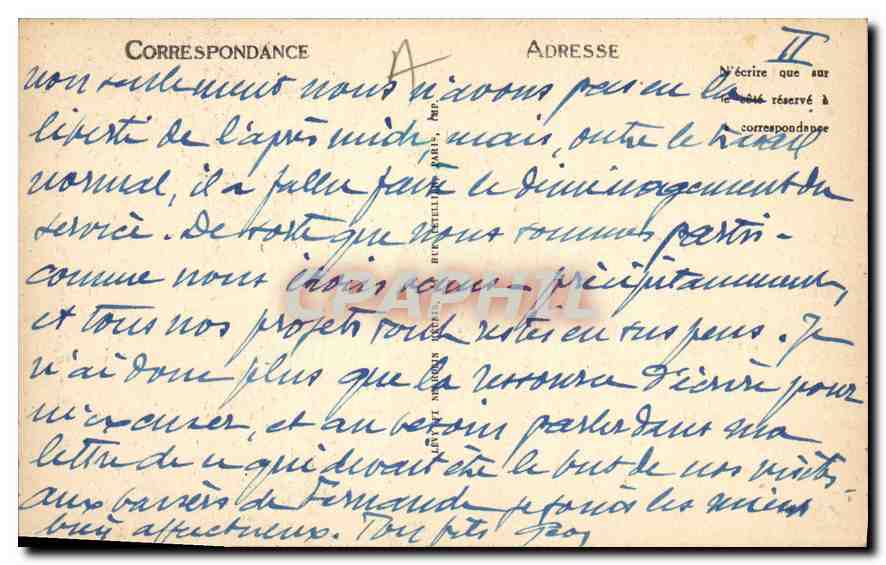 CORRESPONDANCE
ADRESSE
II
A
N'écrire que sur
le côté réservé à
la correspondance
non seulement nous n'avons pas eu la
liberté de l'après midi, mais, outre le travail
normal, il a fallu faire le déménagement du
service. De sorte que nous sommes partis -
comme nous étions venus - précipitamment,
et tous nos projets sont restés en suspens. Je
n'ai donc plus que la ressource d'écrire pour
m'excuser, et au besoin parler dans ma
lettre de ce qui devait être le but de nos visites
aux baisers de Fernande je joins les miens
bien affectueux. Ton fils
LÉVY ET NEURDEIN RÉUNIS, RUE LETELLIER, PARIS, IMP.
CPAPHIL